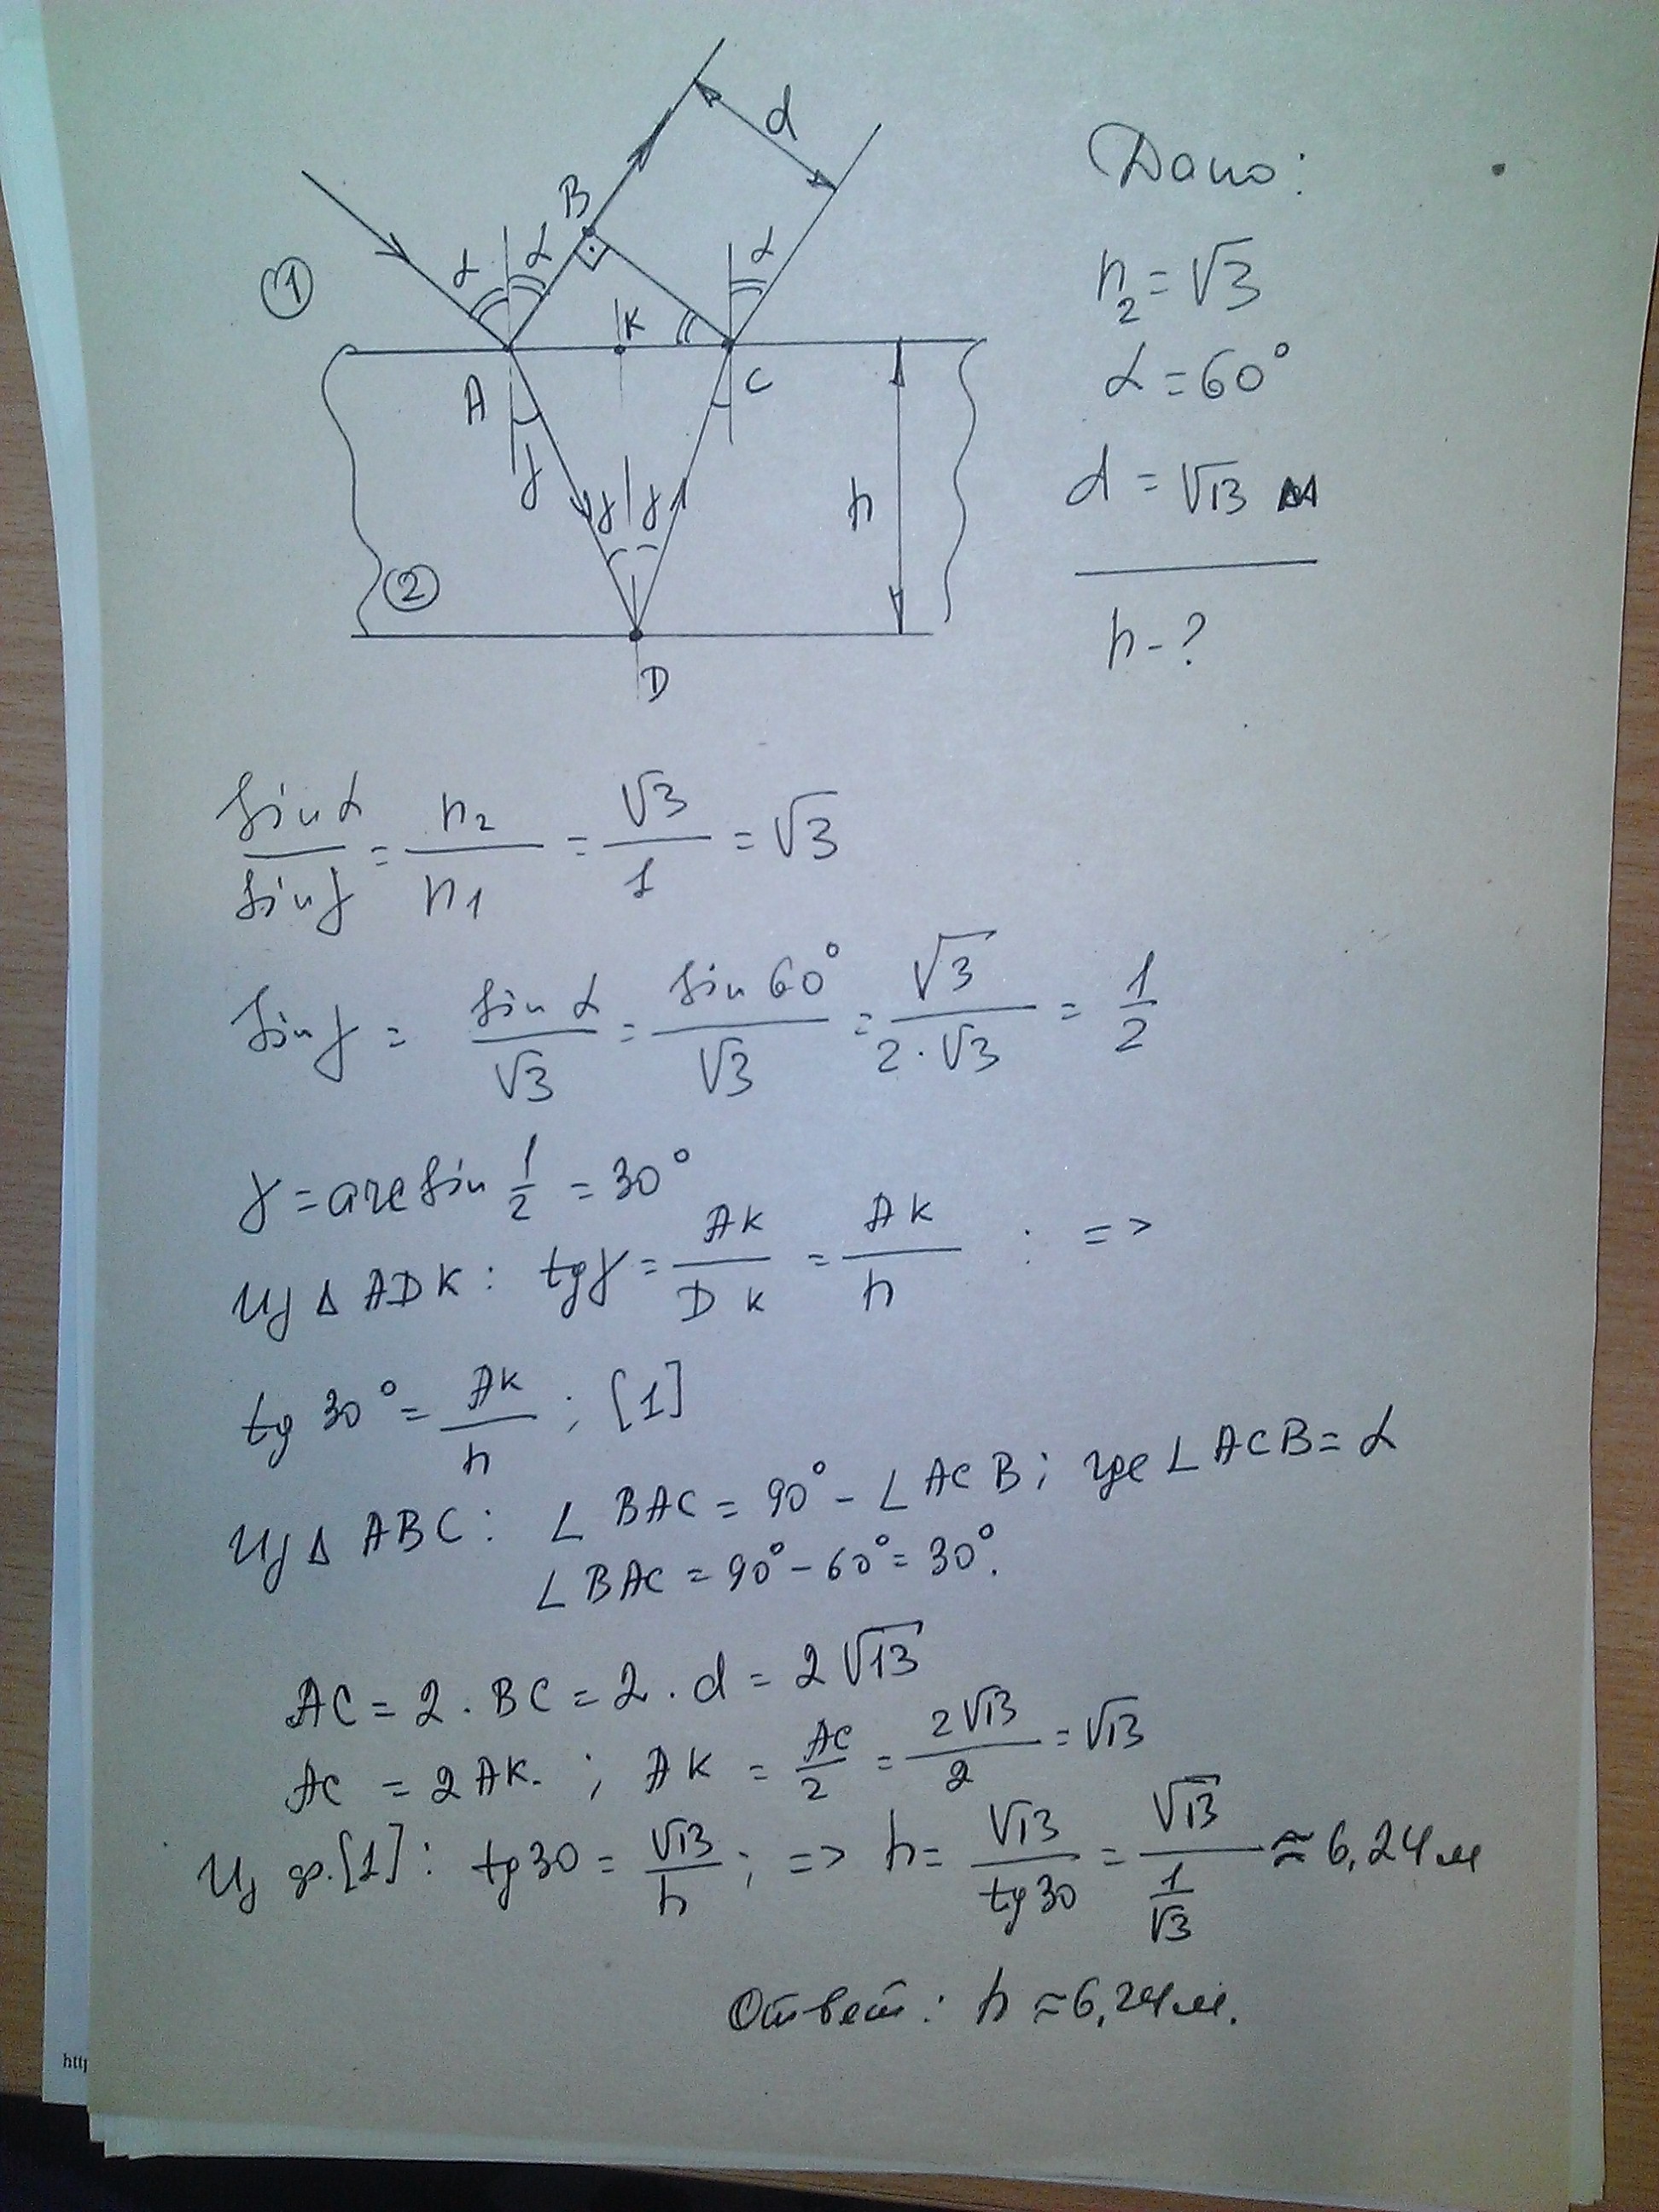 d
B
α
α
α
①
K
A
C
γ
γ
γ
h
②
D
Дано:
n₂ = √3
α = 60°
d = √13 м
h - ?
sin α / sin γ = n₂ / n₁ = √3 / 1 = √3
sin γ = sin α / √3 = sin 60° / √3 = √3 / 2·√3 = 1/2
γ = arcsin 1/2 = 30°
Из Δ ADK: tg γ = AK / DK = AK / h ; =>
tg 30° = AK / h ; [1]
Из Δ ABC: ∠ BAC = 90° - ∠ ACB; где ∠ ACB = α
∠ BAC = 90° - 60° = 30°.
AC = 2 · BC = 2 · d = 2√13
AC = 2 AK. ; AK = AC / 2 = 2√13 / 2 = √13
Из ф.[1]: tg 30 = √13 / h ; => h = √13 / tg 30 = √13 / 1/√3 ≈ 6,24 м
Ответ: h ≈ 6,24 м.
http